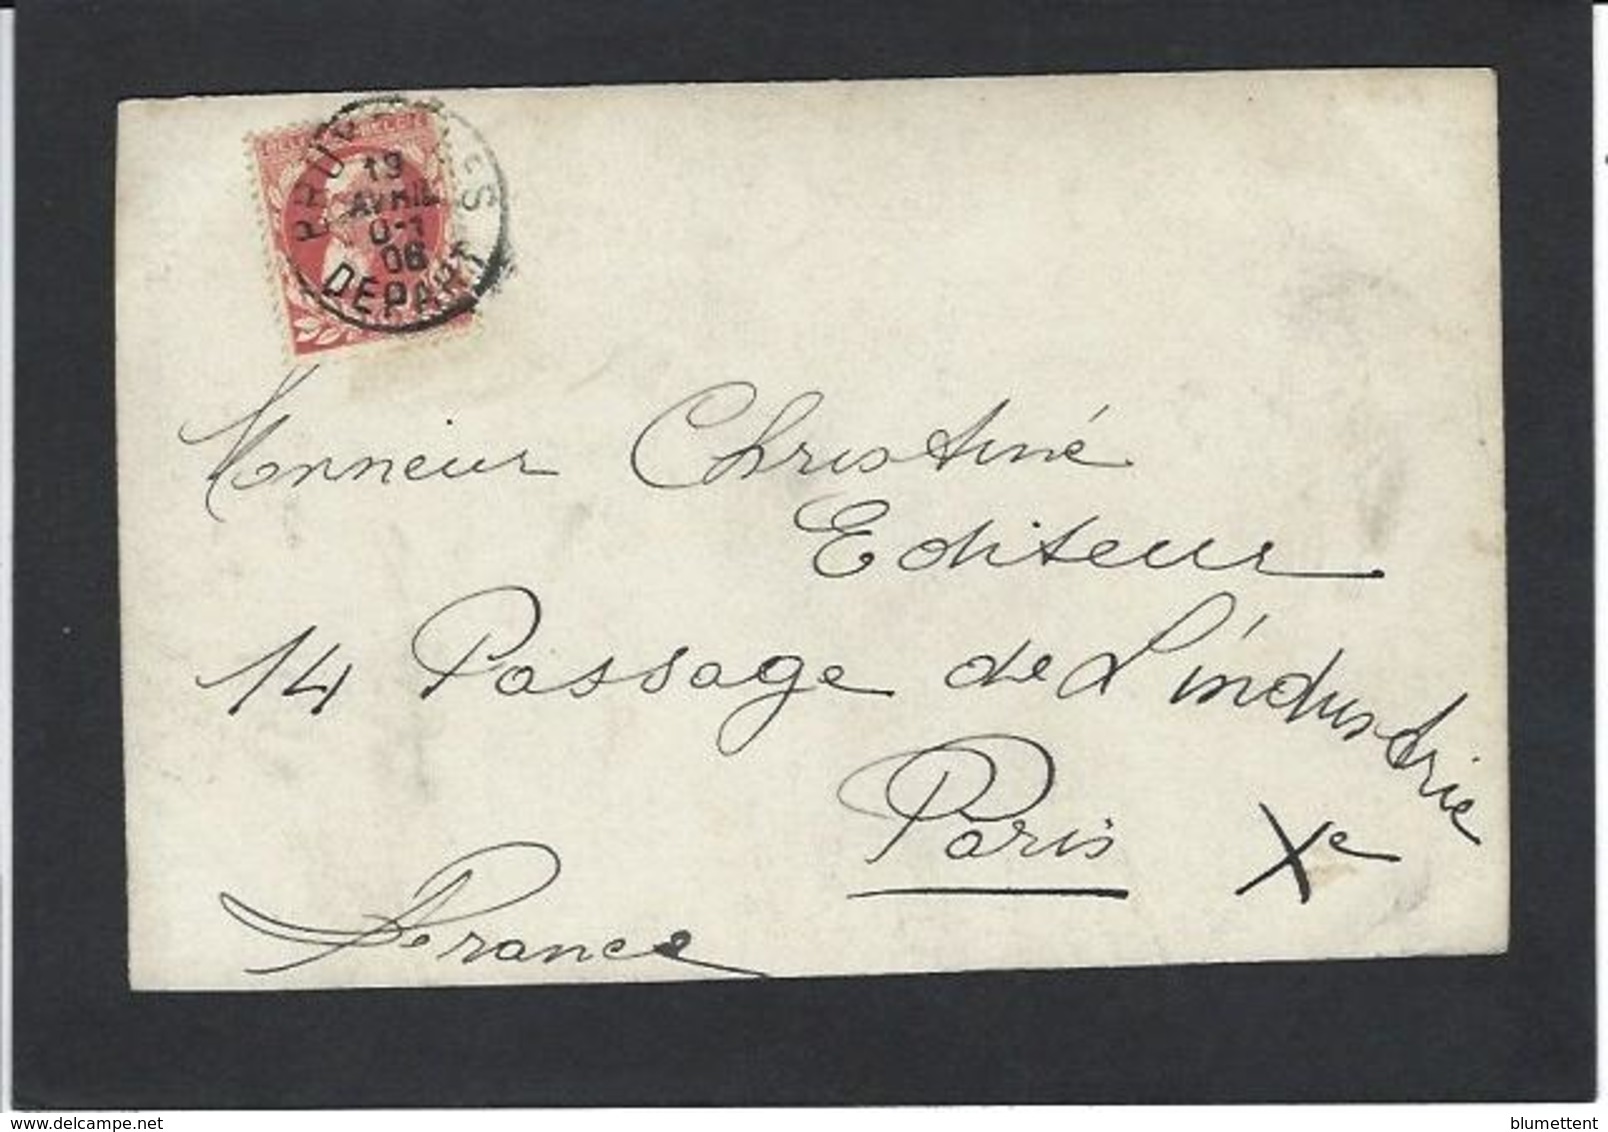 BRUXELLES
19
AVRIL
06
DEPART
Monsieur Christiné
Editeur
14 Passage de L'industrie
Paris Xe
France
delcampe.net
blumettent